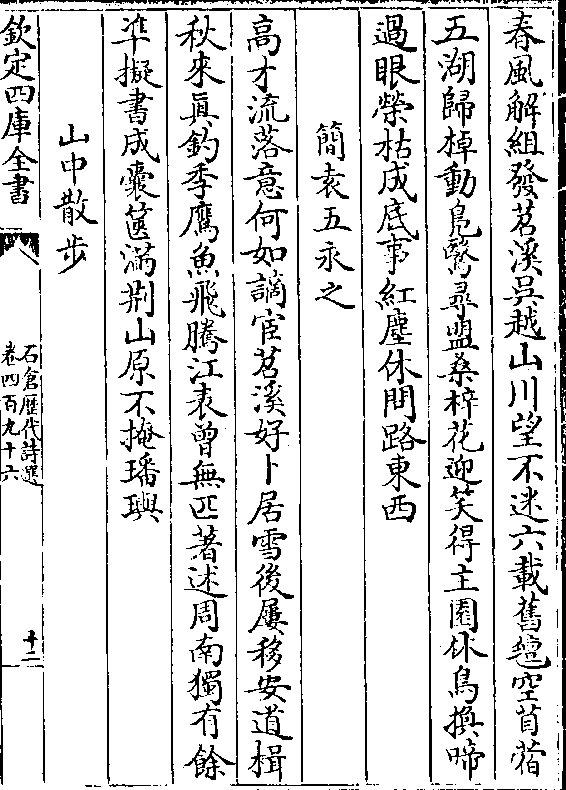 春風解組發苕溪吳越山川望不迷六載舊氊空苜蓿
五湖歸棹動鳬鷖尋盟桑梓花迎笑得主園林鳥換啼
過眼榮枯成底事紅塵休問路東西
簡袁五永之
高才流落意何如謫宦苕溪好卜居雪後屢移安道楫
秋來真釣季鷹魚飛騰江表曾無匹著述周南獨有餘
準擬書成囊篋滿荆山原不掩璠璵
山中散步
欽定四庫全書
石倉歷代詩選
卷四百九十六
十二